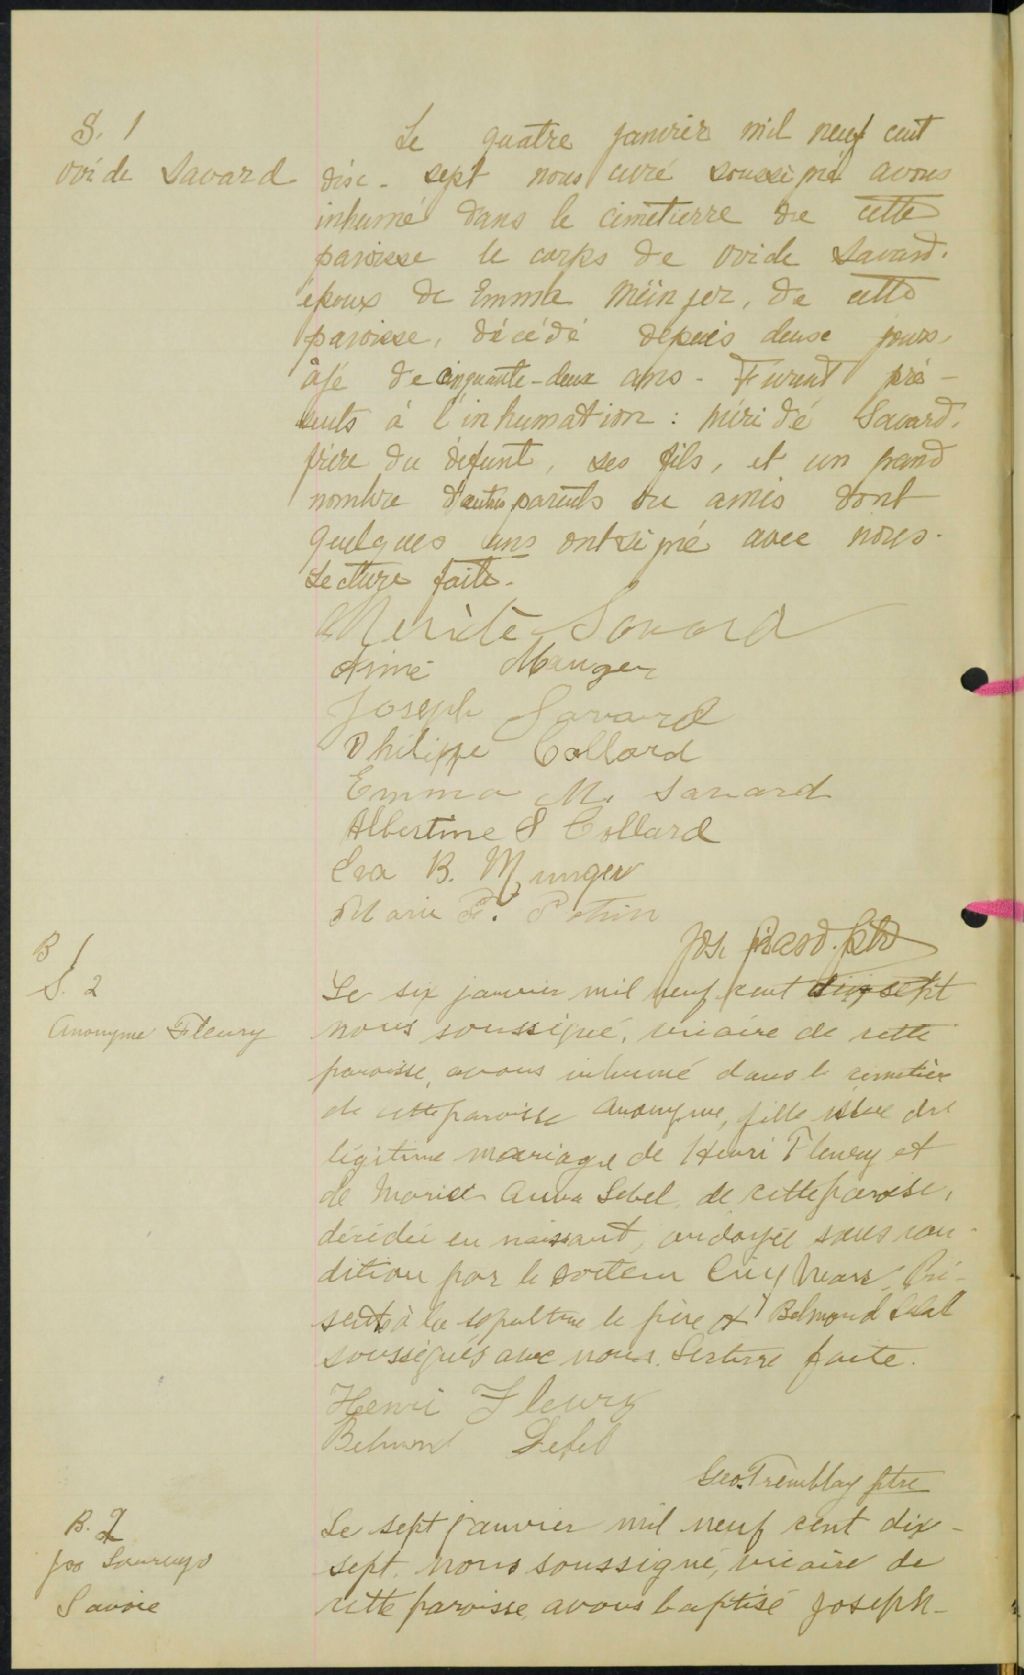 S. 1
Ovide Savard
Le quatre janvier mil neuf cent
dix-sept nous curé soussigné avons
inhumé dans le cimetierre de cette
paroisse le corps de Ovide Savard.
époux de Emma Münger, de cette
paroisse, décédé depuis deux jours,
âgé de cinquante-deux ans. Furent pré-
sents à l'inhumation : Méridé Savard,
frère du défunt, ses fils, et un grand
nombre d'autres parents ou amis dont
quelques uns ont signé avec nous.
Lecture faite.
Meridé Savard
Aimé Munger
Joseph Savard
Philippe Collard
Emma M. Savard
Albertine S Collard
Eva B. Munger
Marie F. Potvin
Jos. ptre
B 1
S. 2
Anonyme Fleury
Le six janvier mil neuf cent dix sept
nous soussigné, vicaire de cette
paroisse, avons inhumé dans le cimetière
de cette paroisse Anonyme, fille issue du
légitime mariage de Henri Fleury et
de Marie Anna Lebel, de cette paroisse,
décédée en naissant, ondoyée sous con-
dition par le docteur Pré-
sents à la sépulture le père & Belmond Lebel
soussignés avec nous. Lecture faite.
Henri Fleury
Belmond Lebel
Geo. Tremblay ptre
B. 2
Jos
Savoie
Le sept janvier mil neuf cent dix-
sept, nous soussigné, vicaire de
cette paroisse, avons baptisé Joseph-